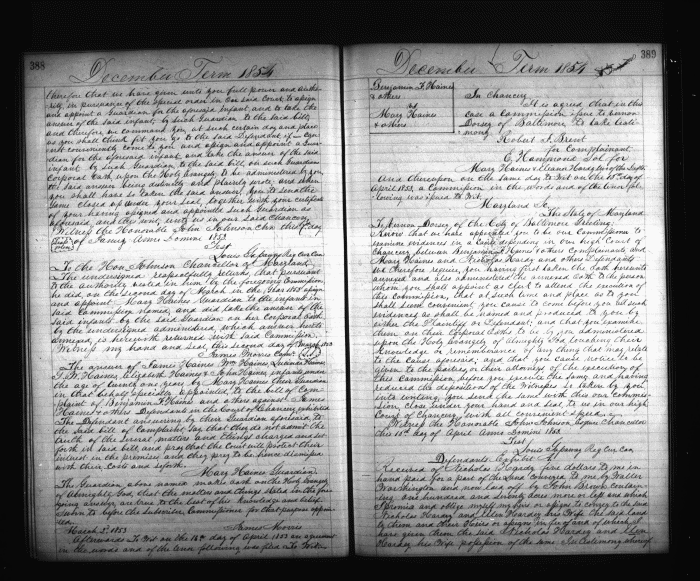 388
December Term 1854
therefore that we have given unto you full power and autho-
rity, in pursuance of the special order in our said Court to assign
and appoint a Guardian for the aforesaid infant, and to take the
answer of the said infant by such Guardian to the said bill,
and therefore we command you at such certain day and place
as you shall think fit, you go to the said Defendant if he can
not conveniently come to you and assign and appoint a Guar-
dian for the aforesaid infant and take the answer of the said
infant by such Guardian, to the said bill on such Guardians
Corporal Oath upon the Holy Evangely to be administered by you,
the said answer being distinctly and plainly wrote, and when
you shall have so taken the said answer, you to send the
same closed up under your seal, together with your certificate
of your having assigned and appointed such Guardian as
aforesaid, and this writ, unto us in our said Chancery.
Witness the Honorable John Johnson Chan this day
of January Anno Domini 1853
Test
Louis Gassaway Reg Cur Can
To the Hon. Johnson Chancellor of Maryland.
The undersigned respectfully returns, that pursuant
to the authority vested in him by the foregoing Commission
he did, on the second day of March in the year 1853 assign
and appoint Mary Haines Guardian to the infants in
said Commission named, and did take the answer of the
said infants by the said Guardian on her corporal oath
by the undersigned administered, which answer hereto
annexed, is herewith returned with said Commission.
Witness my hand and seal, this second day of March 1853
James Morris
The answer of James Haines Wm Haines, Lucinda Haines,
Elizabeth Haines & John Haines infants under
the age of twenty one years by Mary Haines their Guardian
in that behalf specially appointed, to the bill of Com-
plaint of Benjamin Haines and others against James
Haines & others Defendants in the Court of Chancery exhibited
The Defendant answering by their Guardian aforesaid to
the said bill of Complaint say that they do not admit the
truth of the several matters and things charged and set
forth in said bill, and pray that the Court will protect their
interest in the premises and they pray to be hence dismissed
with their costs and so forth.
Mary Haines Guardian.
The Guardian above named makes oath on the Holy Evangely
of Almighty God that the matters and things stated in the fore-
going answer, are true to the best of her knowledge and belief
Sworn to before the Subscriber Commissioner for that purpose appoin-
ted.
March 2d 1853 James Morris
Afterwards To Wit on the 18th day of April 1853 an agreement
in the words and of the tenor following was filed To Wit
389
December Term 1854
Benjamin F. Haines
& others
vs
Mary Haines
& others
In Chancery
It is agreed that in this
case a commission issue to Vernon
Dorsey of Baltimore to take testi-
mony.
Robert J. Brent
for Complainant
E. Hammond Sol for
Mary Haines
And afterwards on the same day to Wit on the 18th day of
April 1853, a Commission in the words and of the tenor fol-
lowing was issued To Wit.
Maryland Sc.
The State of Maryland
To Vernon Dorsey of the City of Baltimore Greeting:
Know that we have appointed you to be our Commissioner to
examine evidences in a cause depending in our high Court of
Chancery between Benjamin F. Haines & others Complainants and
Mary Haines and Nicholas Hardy and others Defendants
We therefore require you having first taken the oath hereunto
annexed and also administered the annexed oath to the person
whom you shall appoint as clerk to attend the execution of
this Commission, that at such time and place as to you
shall seem convenient you cause to come before you all such
evidences as shall be named and produced to you by
either the Plaintiffs or Defendants; and that you examine
them on their corporal oaths to be by you administered
upon the Holy Evangely of Almighty God touching their
knowledge or remembrance of any thing that may relate
to the cause aforesaid, and that you cause notice to be
given to the parties, or their attorneys of the execution of
this Commission, before you execute the same, and having
reduced the depositions of the Witnesses so taken by you
into writing, you send the same with this our commis-
sion, close under your hand and seal to us in our high
Court of Chancery, with all convenient speed.
Witness the Honorable John Johnson Esquire Chancellor
this 18th day of April Anno Domini 1853.
Test
Louis Gassaway Reg Cur Can
Defendants Exhibit A
Received of Nicholas Hardy five dollars to me in
hand paid for a part of the land conveyed to me by Walter
Worthington and now laid off by John Brown contain-
ing one hundred and seventy acres more or less and which
I promise and oblige myself my heirs or assigns to convey to the said
Nicholas Hardy and Ellen Hardy his Wife the said land
to them and their Heirs or assigns in fee and of which I
have given them the said Nicholas Hardy and Ellen
Hardy his Wife possession of the same In testimony whereof